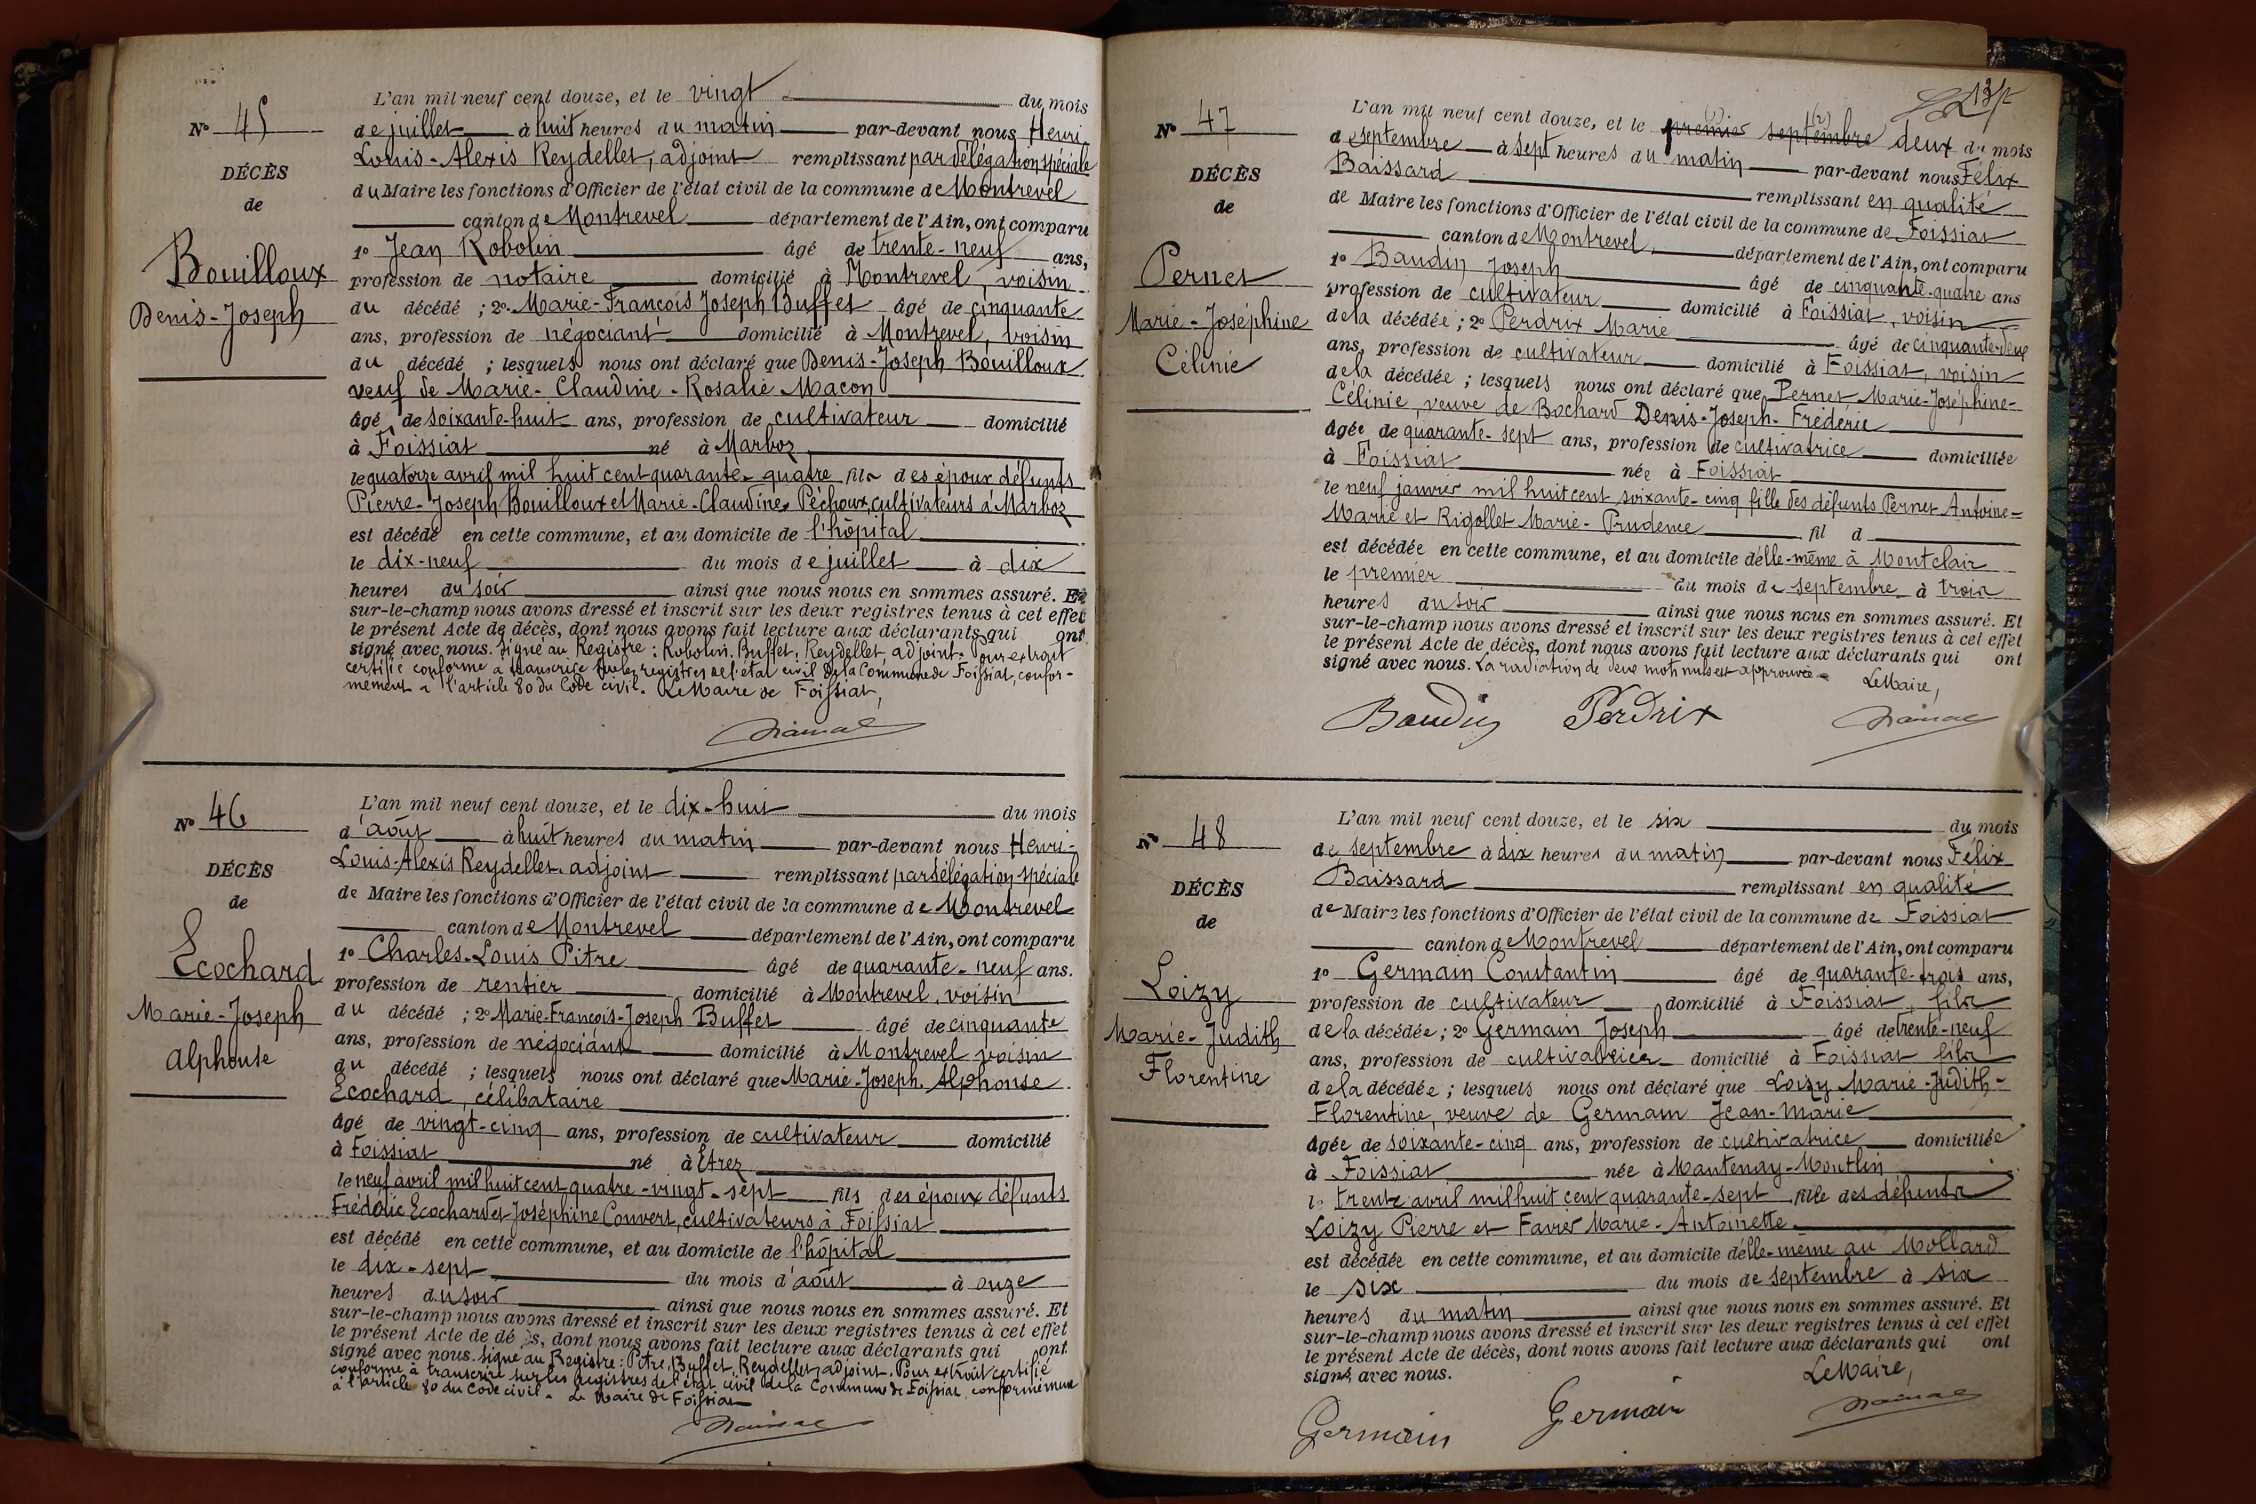 N° 45
DÉCÈS
de
Bouilloux
Denis-Joseph
L'an mil neuf cent douze, et le vingt du mois
de juillet à huit heures du matin par-devant nous Henri
Louis-Alexis Reydellet, adjoint remplissant par délégation spéciale
du Maire les fonctions d'Officier de l'état civil de la commune de Montrevel
canton de Montrevel département de l'Ain, ont comparu
1° Jean Robolin âgé de trente-neuf ans,
profession de notaire domicilié à Montrevel, voisin
du décédé ; 2° Marie-François Joseph Buffet âgé de cinquante
ans, profession de négociant domicilié à Montrevel, voisin
du décédé ; lesquels nous ont déclaré que Denis-Joseph Bouilloux
veuf de Marie-Claudine-Rosalie Macon
âgé de soixante-huit ans, profession de cultivateur domicilié
à Foissiat né à Marboz
le quatorze avril mil huit cent quarante-quatre fils des époux défunts
Pierre-Joseph Bouilloux et Marie-Claudine Péchoux, cultivateurs à Marboz
est décédé en cette commune, et au domicile de l'hôpital
le dix-neuf du mois de juillet à dix
heures du soir ainsi que nous nous en sommes assuré. Et
sur-le-champ nous avons dressé et inscrit sur les deux registres tenus à cet effet
le présent Acte de décès, dont nous avons fait lecture aux déclarants qui ont
signé avec nous. Signé au Registre : Robolin. Buffet, Reydellet, adjoint. Pour extrait
certifié conforme à transcrire sur les registres de l'état civil de la Commune de Foissiat, confor-
mément à l'article 80 du Code civil. Le Maire de Foissiat,
N° 46
DÉCÈS
de
Ecochard
Marie-Joseph
Alphonse
L'an mil neuf cent douze, et le dix-huit du mois
d'août à huit heures du matin par-devant nous Henri-
Louis-Alexis Reydellet, adjoint remplissant par délégation spéciale
de Maire les fonctions d'Officier de l'état civil de la commune de Montrevel
canton de Montrevel département de l'Ain, ont comparu
1° Charles-Louis Pitre âgé de quarante-neuf ans.
profession de rentier domicilié à Montrevel, voisin
du décédé ; 2° Marie-François-Joseph Buffet âgé de cinquante
ans, profession de négociant domicilié à Montrevel voisin
du décédé ; lesquels nous ont déclaré que Marie-Joseph Alphonse
Ecochard, célibataire
âgé de vingt-cinq ans, profession de cultivateur domicilié
à Foissiat né à Etrez
le neuf avril mil huit cent quatre-vingt-sept fils des époux défunts
Frédéric Ecochard et Joséphine Convert, cultivateurs à Foissiat
est décédé en cette commune, et au domicile de l'hôpital
le dix-sept du mois d'août à onze
heures du soir ainsi que nous nous en sommes assuré. Et
sur-le-champ nous avons dressé et inscrit sur les deux registres tenus à cet effet
le présent Acte de décès, dont nous avons fait lecture aux déclarants qui ont
signé avec nous. Signé au Registre : Pitre, Buffet, Reydellet, adjoint. Pour extrait certifié
conforme à transcrire sur les Registres de l'état civil de la Commune de Foissiat, conformément
à l'article 80 du Code civil. Le Maire de Foissiat
N° 47
DÉCÈS
de
Pernet
Marie-Joséphine
Célinie
L'an mil neuf cent douze, et le premier (1) septembre (2) deux du mois
de septembre à sept heures du matin par-devant nous Félix
Baissard remplissant en qualité
de Maire les fonctions d'Officier de l'état civil de la commune de Foissiat
canton de Montrevel, département de l'Ain, ont comparu
1° Baudin Joseph âgé de cinquante-quatre ans
profession de cultivateur domicilié à Foissiat, voisin
de la décédée ; 2° Perdrix Marie âgé de cinquante-deux
ans, profession de cultivateur domicilié à Foissiat, voisin
de la décédée ; lesquels nous ont déclaré que Pernet Marie-Joséphine-
Célinie, veuve de Bochard Denis-Joseph-Frédéric
âgée de quarante-sept ans, profession de cultivatrice domiciliée
à Foissiat née à Foissiat
le neuf janvier mil huit cent soixante-cinq fille des défunts Pernet Antoine-
Marie et Rigollet Marie-Prudence fil d
est décédée en cette commune, et au domicile d'elle-même à Montclair
le premier du mois de septembre à trois
heures du soir ainsi que nous nous en sommes assuré. Et
sur-le-champ nous avons dressé et inscrit sur les deux registres tenus à cet effet
le présent Acte de décès, dont nous avons fait lecture aux déclarants qui ont
signé avec nous. La radiation de deux mots nuls est approuvée Le Maire,
Baudin Perdrix
N° 48
DÉCÈS
de
Loizy
Marie-Judith
Florentine
L'an mil neuf cent douze, et le six du mois
de septembre à dix heures du matin par-devant nous Félix
Baissard remplissant en qualité
de Maire les fonctions d'Officier de l'état civil de la commune de Foissiat
canton de Montrevel département de l'Ain, ont comparu
1° Germain Constantin âgé de quarante-trois ans,
profession de cultivateur domicilié à Foissiat, fils
de la décédée ; 2° Germain Joseph âgé de trente-neuf
ans, profession de cultivateur domicilié à Foissiat fils
de la décédée ; lesquels nous ont déclaré que Loizy Marie-Judith-
Florentine, veuve de Germain Jean-Marie
âgée de soixante-cinq ans, profession de cultivatrice domiciliée
à Foissiat née à Mantenay-Montlin
le trente avril mil huit cent quarante-sept fille des défunts
Loizy Pierre et Favier Marie-Antoinette
est décédée en cette commune, et au domicile d'elle-même au Mollard
le six du mois de septembre à six
heures du matin ainsi que nous nous en sommes assuré. Et
sur-le-champ nous avons dressé et inscrit sur les deux registres tenus à cet effet
le présent Acte de décès, dont nous avons fait lecture aux déclarants qui ont
signé avec nous. Le Maire,
Germain Germain